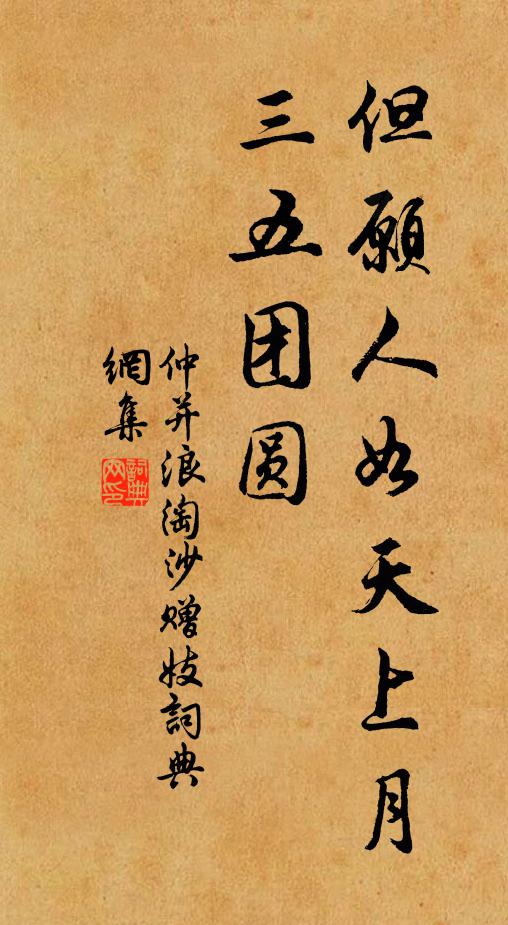 但願人如天上月
三五团圆
仲并浪淘沙赠妓詞典
網集
詞典網印